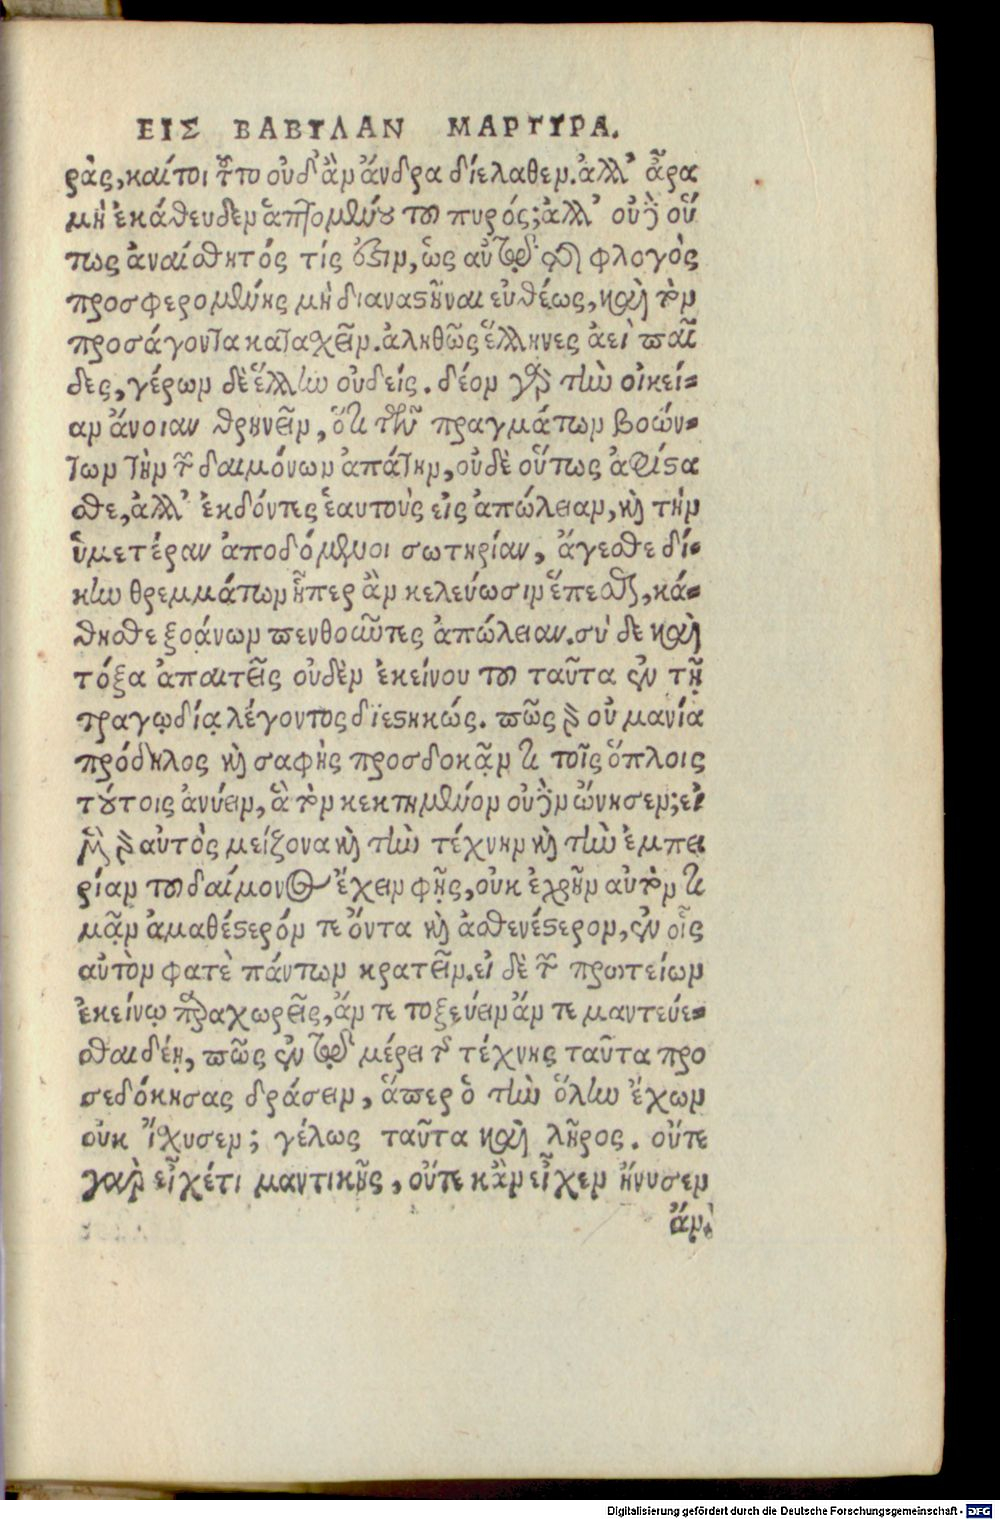 ΕΙΣ ΒΑΒΥΛΑΝ ΜΑΡΤΥΡΑ.
ρὰς, καίτοι τοῦτο οὐδ' ἂν ἄνδρα διέλαθεν. ἀλλ' ἆρα
μὴ ἐκάθευδεν ἁπτομένου τοῦ πυρός; ἀλλ' οὐδ' οὕ
πως ἀναίσθητός τίς ἐστιν, ὡς αὐτῷ τῆς φλογὸς
προσφερομένης μὴ διαναστῆναι εὐθέως, καὶ τὸν
προσάγοντα κατασχεῖν. ἀληθῶς ἕλληνες ἀεὶ παῖ
δες, γέρων δὲ ἕλλην οὐδείς. δέον γὰρ τὴν οἰκεί-
αν ἄνοιαν θρηνεῖν, ὅτι τῶν πραγμάτων βοών-
των τὴν τῶν δαιμόνων ἀπάτην, οὐδὲ οὕτως ἀφίστα
σθε, ἀλλ' ἐκδόντες ἑαυτοὺς εἰς ἀπώλειαν, καὶ τὴν
ὑμετέραν ἀποδόμενοι σωτηρίαν, ἄγεσθε δί-
κην θρεμμάτων ᾗπερ ἂν κελεύωσιν ἕπεσθαι, κά-
θησθε ξοάνων πενθοῦντες ἀπώλειαν. σὺ δὲ καὶ
τόξα ἀπαιτεῖς οὐδὲν ἐκείνου τοῦ ταῦτα ἐν τῇ
τραγῳδίᾳ λέγοντος διεστηκώς. πῶς γὰρ οὐ μανία
πρόδηλος καὶ σαφὴς προσδοκᾷν τι τοῖς ὅπλοις
τούτοις ἀνύειν, ἃ τὸν κεκτημένον οὐδὲν ὤνησεν; εἰ
μὲν γὰρ αὐτὸς μείζονα καὶ τὴν τέχνην καὶ τὴν ἐμπει
ρίαν τοῦ δαίμονος ἔχειν φῂς, οὐκ ἐχρῆν αὐτὸν τι
μᾷν ἀμαθέστερόν τε ὄντα καὶ ἀσθενέστερον, ἐν οἷς
αὐτόν φατὲ πάντων κρατεῖν. εἰ δὲ τῶν πρωτείων
ἐκείνῳ παραχωρεῖς, ἄν τε τοξεύειν ἄν τε μαντεύε-
σθαι δέῃ, πῶς ἐν τῷ μέρει τῆς τέχνης ταῦτα προ
σεδόκησας δράσειν, ἅπερ ὁ τὴν ὅλην ἔχων
οὐκ ἴσχυσεν; γέλως ταῦτα καὶ λῆρος. οὔτε
γὰρ εἶχέ τι μαντικῆς, οὔτε κἂν εἶχεν ἤνυσεν
ἄν.
Digitalisierung gefördert durch die Deutsche Forschungsgemeinschaft - DFG